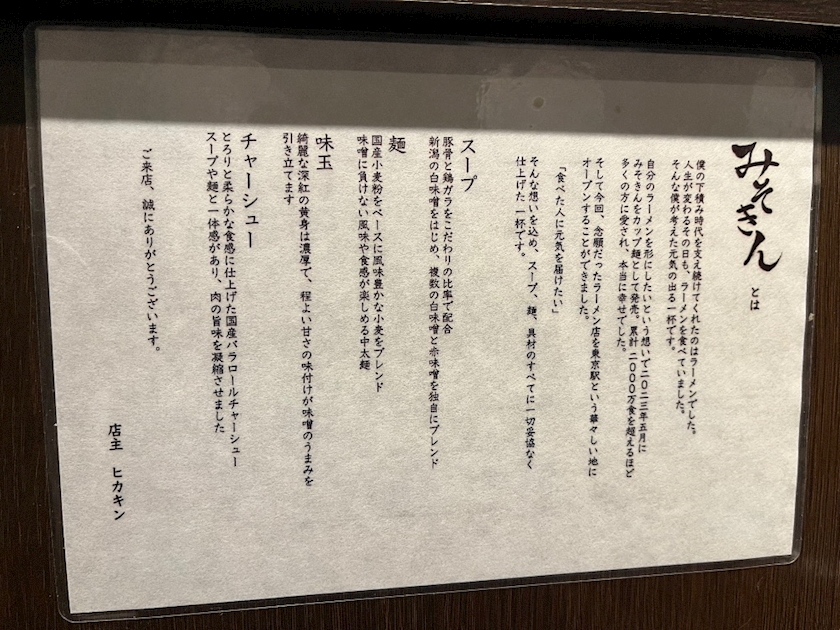 みそきん とは
僕の下積み時代を支え続けてくれたのはラーメンでした。
人生が変わるその日も、ラーメンを食べていました。
そんな僕が考えた元気の出る一杯です。
自分のラーメンを形にしたいという想いで二〇二三年五月に
みそきんをカップ麺として発売。累計二〇〇〇万食を超えるほど
多くの方に愛され、本当に幸せでした。
そして今回、念願だったラーメン店を東京駅という華々しい地に
オープンすることができました。
「食べた人に元気を届けたい」
そんな想いを込め、スープ、麺、具材のすべてに一切妥協なく
仕上げた一杯です。
スープ
豚骨と鶏ガラをこだわりの比率で配合
新潟の白味噌をはじめ、複数の白味噌と赤味噌を独自にブレンド
麺
国産小麦粉をベースに風味豊かな小麦をブレンド
味噌に負けない風味や食感が楽しめる中太麺
味玉
綺麗な深紅の黄身は濃厚で、程よい甘さの味付けが味噌のうまみを
引き立てます
チャーシュー
とろりと柔らかな食感に仕上げた国産バラロールチャーシュー
スープや麺と一体感があり、肉の旨味を凝縮させました
ご来店、誠にありがとうございます。
店主 ヒカキン